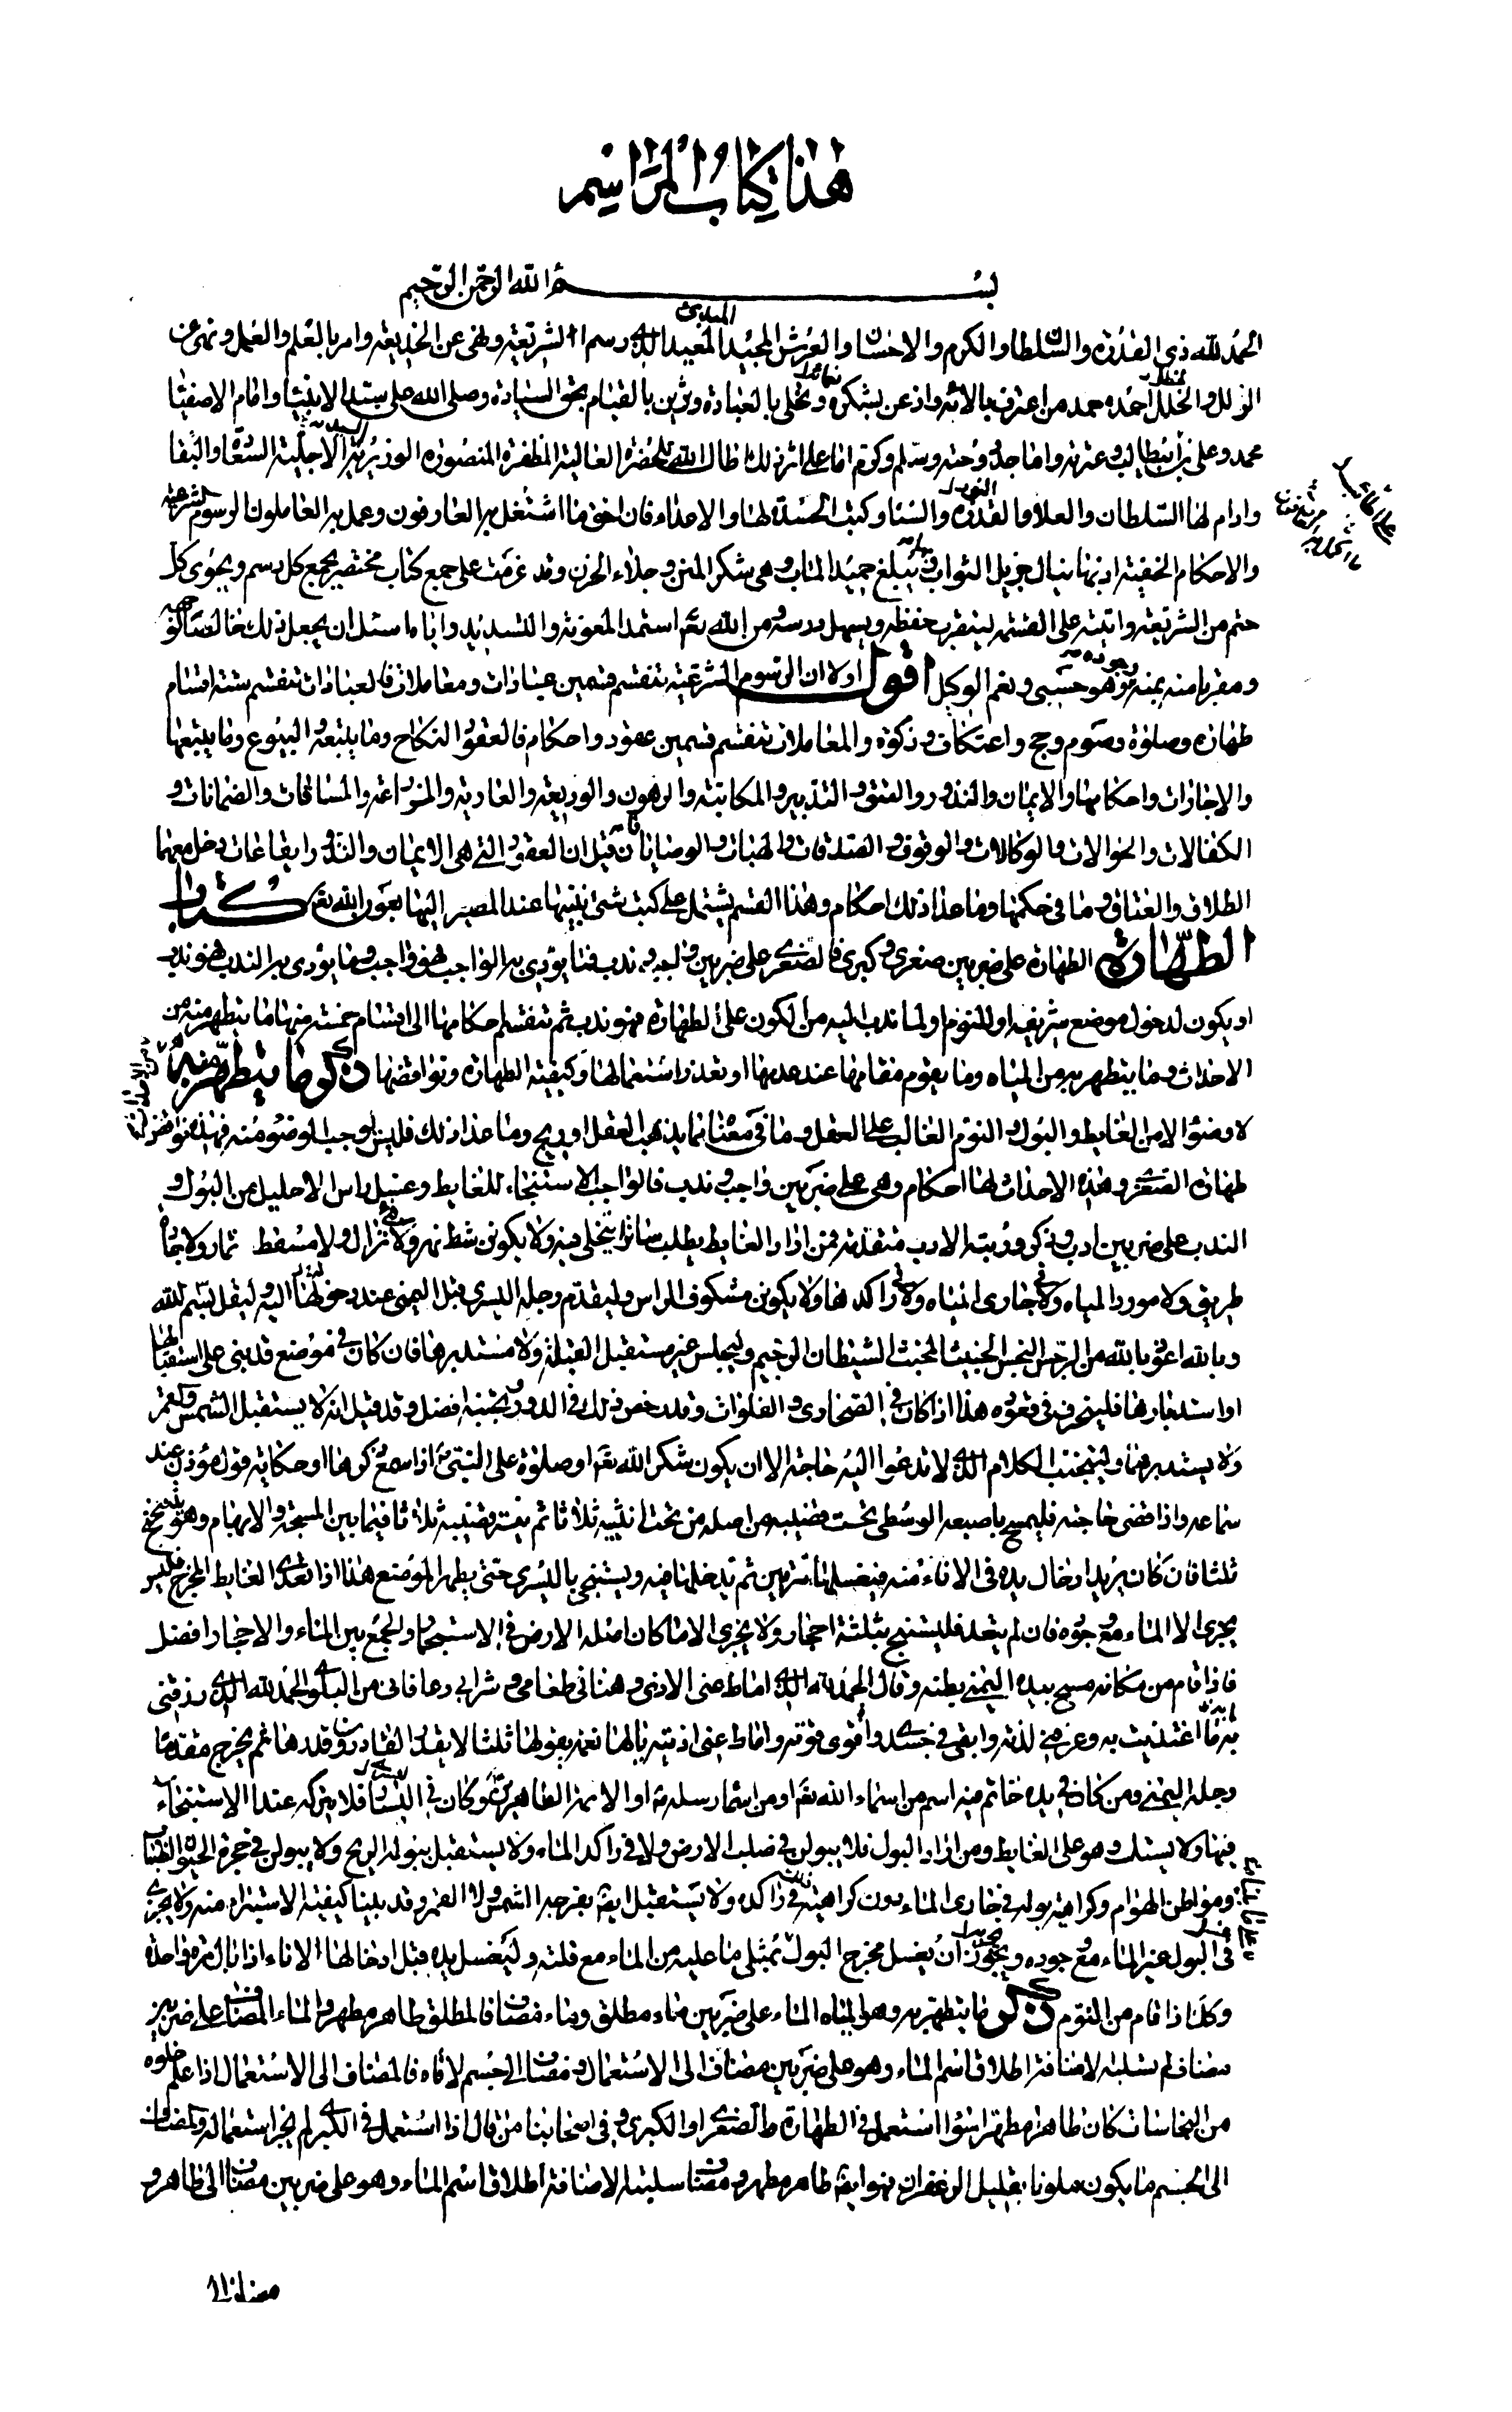 هذا كتاب المراسم
بسم الله الرحمن الرحيم
المبدئ
الحمد لله ذي القدرة والسلطان والكرم والاحسان والعرش المجيد المعيد الذي رسم الشريعة ونهى عن الخديعة وامر بالعلم والعمل ونهى عن
الزلل والخلل احمده حمد من اعترف بالائه واذعن بشكره وتحلى بالعبادة وتزين بالقيام بحق السيادة وصلى الله على سيد الانبياء وامام الاصفياء
محمد وعلى بن ابيطالب وعترته واماجد وسلم وكرم اما على اثر ذلك اطال الله للحضرة العالية المظفرة المنصورة الوزيرية الاجلية السعد والبقا
وادام لها السلطان والعلا والقدرة والسنا وكبت الحسدة لها والاعداء فان احق ما اشتغل به العارفون وعمل به العاملون الرسوم الشرعية
والاحكام الحنفية اذ بها ينال جزيل الثواب ويبلغ حميد الماب وهي شكر المنن وجلاء الحزن وقد عزمت على جمع كتاب مختصر يجمع كل رسم ويحوى كل
حتم من الشريعة وابنيه على القسمة ليقرب حفظه ويسهل درسه ومن الله تع استمد المعونة والتسديد واياه اسئل ان يجعل ذلك خالصا لوجهه
ومقربا منه بمنه وجوده وهو حسبي ونعم الوكيل اقول اولا ان الرسوم الشرعية تنقسم قسمين عبادات ومعاملات فالعبادات تنقسم ستة اقسام
طهارة وصلوة وصوم وحج واعتكاف وزكوة والمعاملات تنقسم قسمين عقود واحكام فالعقود النكاح وما يتبعه البيوع وما يتبعها
والاجارات واحكامها والايمان والنذور والعتق والتدبير والمكاتبة والرهون والوديعة والعارية والمزارعة والمساقات والضمانات و
الكفالات والحوالات والوكالات والوقوف والصدقات والهبات والوصايا فان قيل ان العقود التي هي الايمان والنذور ايقاعات دخل معهما
الطلاق والعتاق وما في حكمها وما عدا ذلك احكام وهذا القسم يشتمل على كتب شتى نبينها عند المصير اليها بعون الله تع كتاب
الطهارة الطهارة على ضربين صغرى وكبرى فالصغرى على ضربين واجب وندب فما يؤدى به الواجب فهو واجب وما يؤدى به الندب فهو ندب
او يكون لدخول موضع شريف او للنوم او لما ندب اليه من الكون على الطهارة فهو ندب ثم تنقسم احكامها الى اقسام خمسة منها ما يتطهر منه من
الاحداث وما يتطهر به من المياه وما يقوم مقامها عند عدمها او تعذر استعمالها وكيفية الطهارة ونواقضها ذكر ما يتطهر منه
لا وضوء الا من الغايط والبول والنوم الغالب على العقل وما في معناه مما يذهب العقل او ريح وما عدا ذلك فليس بوجب الوضوء منه فهذه نواقض
طهارة الصغرى وهذه الاحداث لها احكام وهي على ضربين واجب وندب فالواجب الاستنجاء للغايط وغسل راس الاحليل من البول و
الندب على ضربين ادب وذكر ورتبة الادب متقدمة فمن اراد الغايط يطلب ساترا يتخلى فيه ولا يكون شط نهر ولا فئ نزال ولا مسقط ثمار ولا جادة
طريق ولا مورد المياه ولا في جارى المياه ولا في راكدها ولا يكون مكشوف الراس وليقدم رجله اليسرى قبل اليمنى عند دخولها اليه وليقل بسم الله
وبالله اعوذ بالله من الرجس النجس الخبيث المخبث الشيطان الرجيم وليجلس غير مستقبل القبلة ولا مستدبرها فان كان في موضع قد بنى على استقبالها
او استدبارها فلينحرف في قعوده هذا اذا كان في الصحارى والفلوات وقد رخص ذلك في الدور وتجنبه افضل وقد قيل انه لا يستقبل الشمس والقمر
ولا يستدبرهما وليتجنب الكلام الذي لا تدعوا اليه حاجة الا ان يكون شكر الله تع او صلوة على النبي اذا سمع ذكرها او حكاية قول مؤذن عند
سماعه واذا قضى حاجته فليمسح باصبعه الوسطى تحت قضيبه من اصله من تحت انثييه ثلاثا ثم يمسح قضيبه ثلاثا فيما بين المسبحة والابهام وهو يتنحنح
ثلثا فان كان يريد ادخال يده في الاناء منه فيغسلها مرتين ثم يدخلها فيه ويستنجى باليسرى حتى يطهر الموضع هذا اذا تعدى الغايط المخرج فليس
يجزى الا الماء مع وجوده فان لم يتعد فليستنج بثلثة احجار ولا يجزى الا ما كان اصله الارض في الاستجمار والجمع بين الماء والاحجار افضل
فاذا قام من مكانه مسح بيده اليمنى بطنه وقال الحمد لله الذي اماط عنى الاذى وهنانى طعامى وشرابى وعافانى من البلوى الحمد لله الذي رزقنى
ما اغتذيت به وعرفنى لذته وابقى في جسدى قوته واماط عنى اذيته يا لها نعمة يقولها ثلثا لا يقدر القادرون قدرها ثم يخرج مقدما
رجله اليمنى ومن كان في يده خاتم فيه اسم من اسماء الله تع او من اسماء رسله او الائمة الطاهرين وكان في اليسار فلا يتركه عند الاستنجاء
فيها ولا يستك وهو على الغايط ومن اراد البول فلا يبولن في صلب الارض ولا في راكد الماء ولا يستقبل ببوله الريح ولا يبولن في جحرة الحيوانات
ومواطن الهوام وكراهية بوله في جارى الماء دون كراهيته في راكده ولا يستقبل ايضا بفرجه الشمس ولا القمر وقد بينا كيفية الاستبراء منه ولا يجزى
في البول غير الماء مع وجوده ويجوز ان يغسل مخرج البول بمثلى ما عليه من الماء مع قلته وليغسل يده قبل ادخالها الاناء اذا بال مرة واحدة
وكذا اذا قام من النوم ذكر ما يتطهر به وهو المياه الماء على ضربين ماء مطلق وماء مضاف فالمطلق طاهر مطهر والماء المضاف على ضربين
مضاف لم تسلبه الاضافة اطلاق اسم الماء وهو على ضربين مضاف الى الاستعمال ومضاف الى جسم لاقاه فالمضاف الى الاستعمال اذا علم خلوه
من النجاسات كان طاهرا مطهرا سواء استعمل في الطهارة الصغرى او الكبرى وفي اصحابنا من قال اذا استعمل في الكبرى لم يجز استعماله والمضاف
الى الجسم ما يكون ملونا بقليل الزعفران فهو ايضا طاهر مطهر ومضاف سلبته الاضافة اطلاق اسم الماء وهو على ضربين مضاف الى طاهر و
مضاف الى